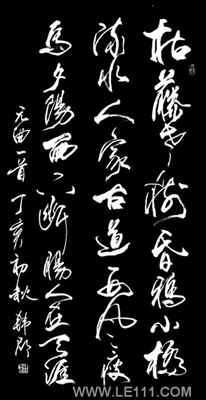 枯藤老樹昏鴉小橋
流水人家古道西风瘦
馬夕陽西下断腸人在天涯
元曲一首 丁亥初秋
WWW.LE111.COM